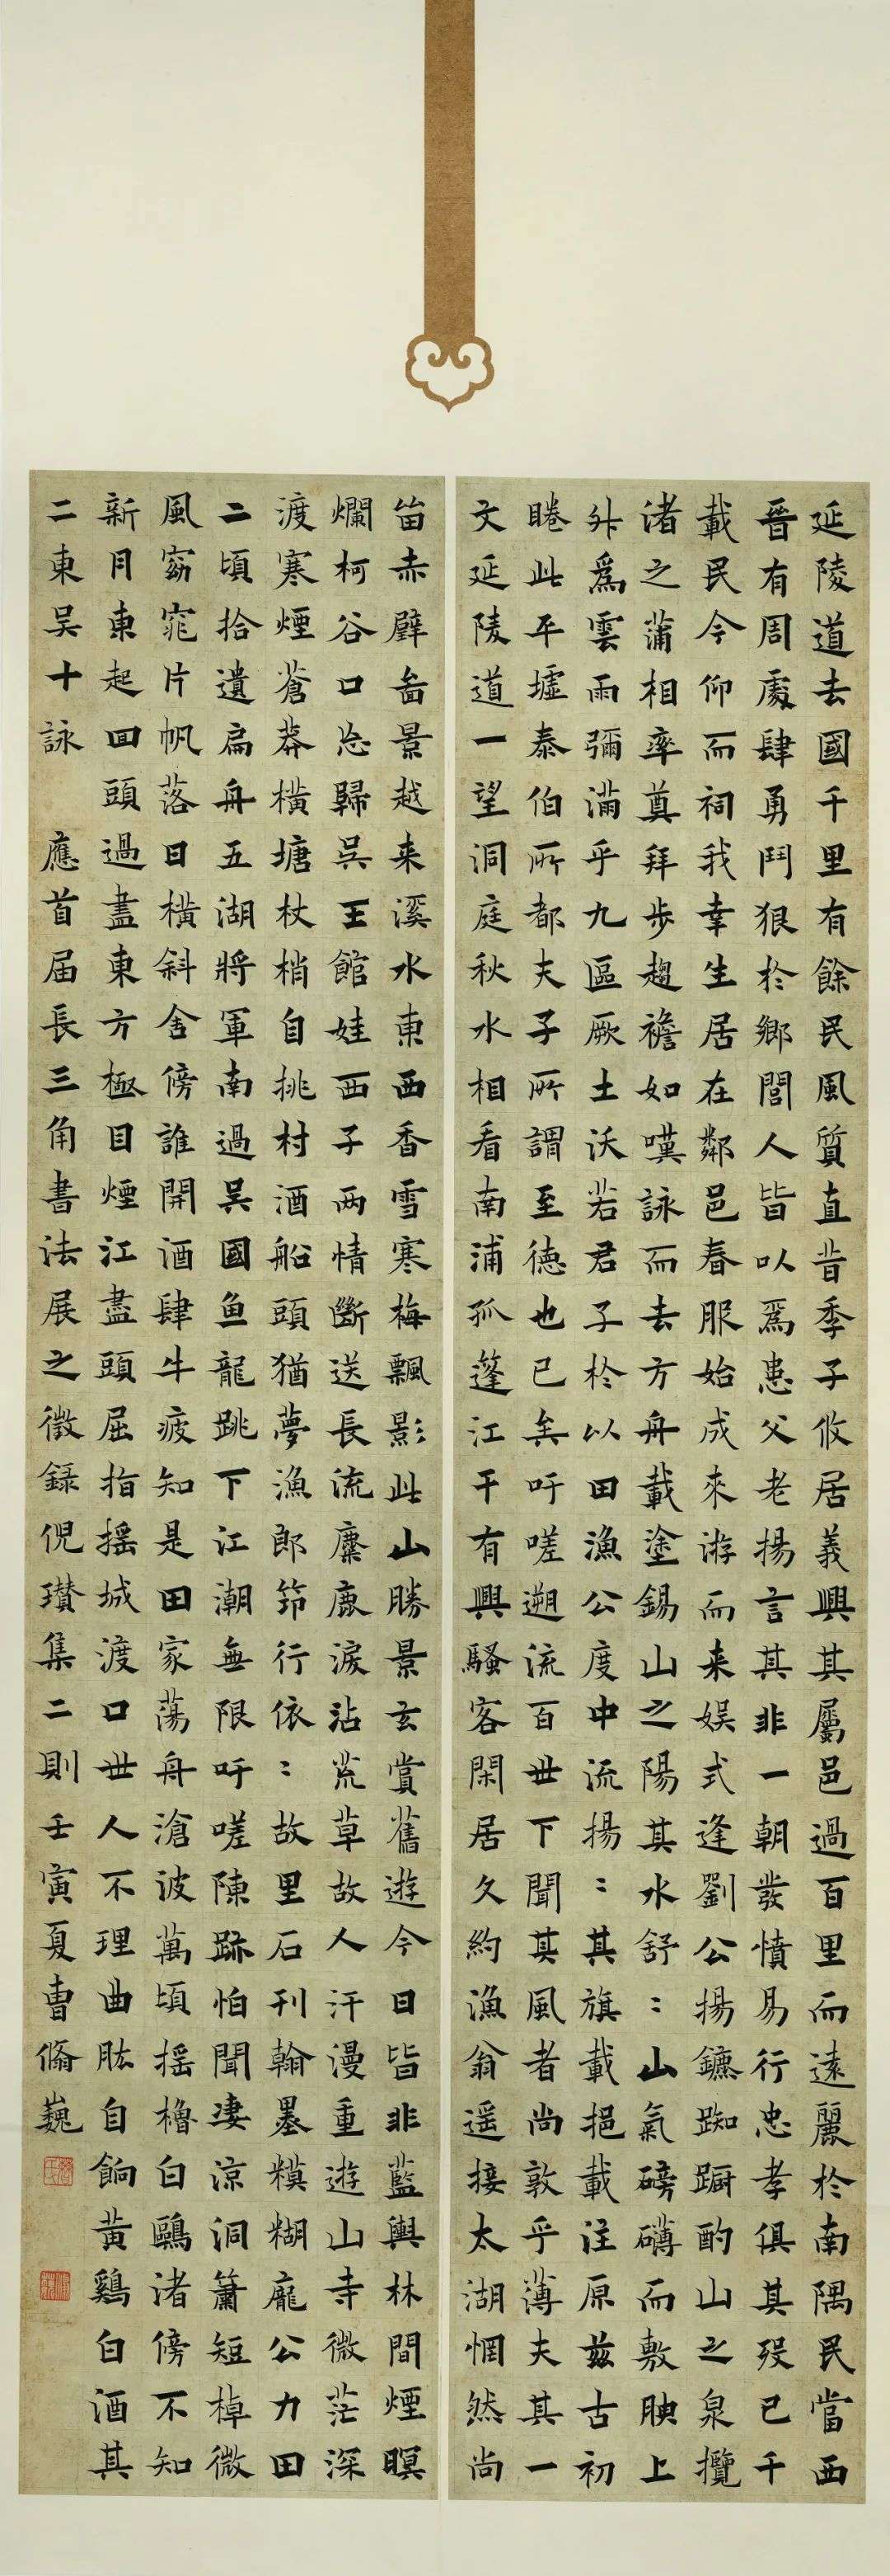 延陵道去國千里有餘民風質直昔季子攸居義興其屬邑過百里而遠麗於南隅民當西
晉有周處肆勇鬥狠於鄉閭人皆以爲患父老揚言其非一朝發憤易行忠孝俱其歿已千
載民今仰而祠我幸生居在鄰邑春服始成來游而来娱式逢劉公揚鑣踟蹰酌山之泉攬
渚之蒲相率奠拜步趨襜如嘆詠而去方舟載塗錫山之陽其水舒:山氣磅礴而敷腴上
外爲雲雨彌滿乎九區厥土沃若君子於以田漁公度中流揚:其旗載挹載注原兹古初
睠此平墟泰伯所都夫子所謂至德也已矣吁嗟遡流百世下聞其風者尚敦乎薄夫其一
文延陵道一望洞庭秋水相看南浦孤蓬江干有興騷客閑居久約漁翁遥接太湖惘然尚
畄赤壁啚景越来溪水東西香雪寒梅飄影此山勝景玄賞舊遊今日皆非藍輿林間煙暝
爛柯谷口忘歸吳王館娃西子两情斷送長流麋鹿淚沾荒草故人汗漫重遊山寺微茫深
渡寒煙蒼莽橫塘杖梢自挑村酒船頭猶夢漁郎笻行依:故里石刊翰墨糢糊龐公力田
二頃拾遺扁舟五湖將軍南過吳國鱼龍跳下江潮無限吁嗟陳跡怕聞淒涼洞簫短棹微
風窈窕片帆落日橫斜舍傍誰開酒肆牛疲知是田家蕩舟滄波萬頃揺櫓白鷗渚傍不知
新月東起回頭過盡東方極目煙江盡頭屈指揺城渡口世人不理曲肱自餉黃鷄白酒其
二東吴十詠 應首届長三角書法展之徵録倪瓚集二則壬寅夏曹脩巍